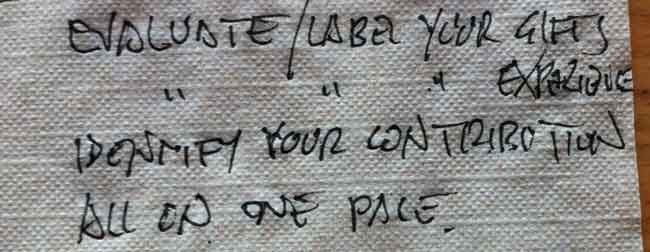 EVALUATE/LABEL YOUR GIFTS
" " " EXPERIENCE
IDENTIFY YOUR CONTRIBUTION
ALL ON ONE PAGE.